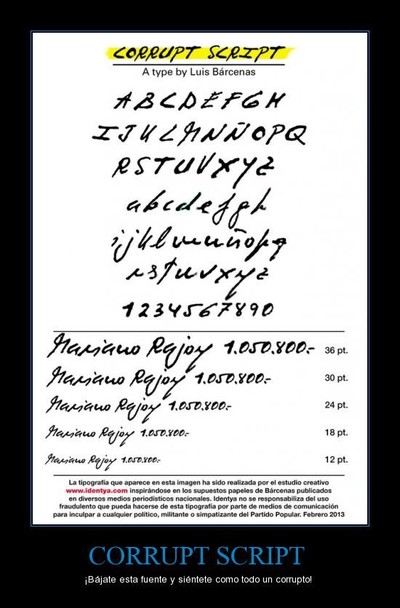 CORRUPT SCRIPT
A type by Luis Bárcenas
ABCDEFGH
IJKLMNÑOPQ
RSTUVXYZ
abcdefgh
ijklmnñopq
rstuvxyz
1234567890
Mariano Rajoy 1.050.800.- 36 pt.
Mariano Rajoy 1.050.800.- 30 pt.
Mariano Rajoy 1.050.800.- 24 pt.
Mariano Rajoy 1.050.800.- 18 pt.
Mariano Rajoy 1.050.800.- 12 pt.
La tipografía que aparece en esta imagen ha sido realizada por el estudio creativo
www.identya.com inspirándose en los supuestos papeles de Bárcenas publicados
en diversos medios periodísticos nacionales. Identya no se responsabiliza del uso
fraudulento que pueda hacerse de esta tipografía por parte de medios de comunicación
para inculpar a cualquier político, militante o simpatizante del Partido Popular. Febrero 2013
CORRUPT SCRIPT
¡Bájate esta fuente y siéntete como todo un corrupto!